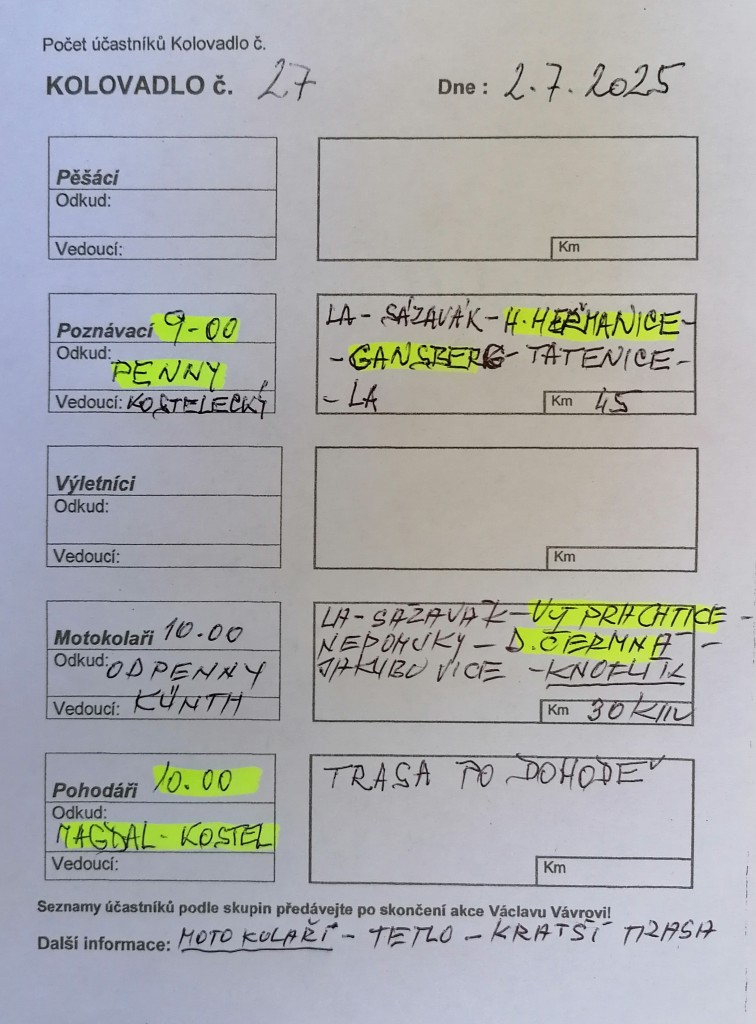 Počet účastníků Kolovadlo č.
KOLOVADLO č. 27 Dne : 2.7.2025
Pěšáci
Odkud:
Vedoucí:
Km
Poznávací 9-00
Odkud:
PENNY
Vedoucí: KOSTELECKÝ
LA - SÁZAVÁK - H. HEŘMANICE -
- GANSBERG - TATENICE -
- LA
Km 45
Výletníci
Odkud:
Vedoucí:
Km
Motokolaři 10.00
Odkud: OD PENNY
Vedoucí: KÜNTH
LA - SÁZAVÁK - VÝPRACHTICE -
NEPOMUKY - D. ČERMNÁ -
JAKUBOVICE - KNOFLÍK
Km 30 KM
Pohodáři 10.00
Odkud:
MAGDAL - KOSTEL
Vedoucí:
TRASA PO DOHODĚ
Km
Seznamy účastníků podle skupin předávejte po skončení akce Václavu Vávrovi!
Další informace: MOTOKOLAŘI - - KRATŠÍ TRASA